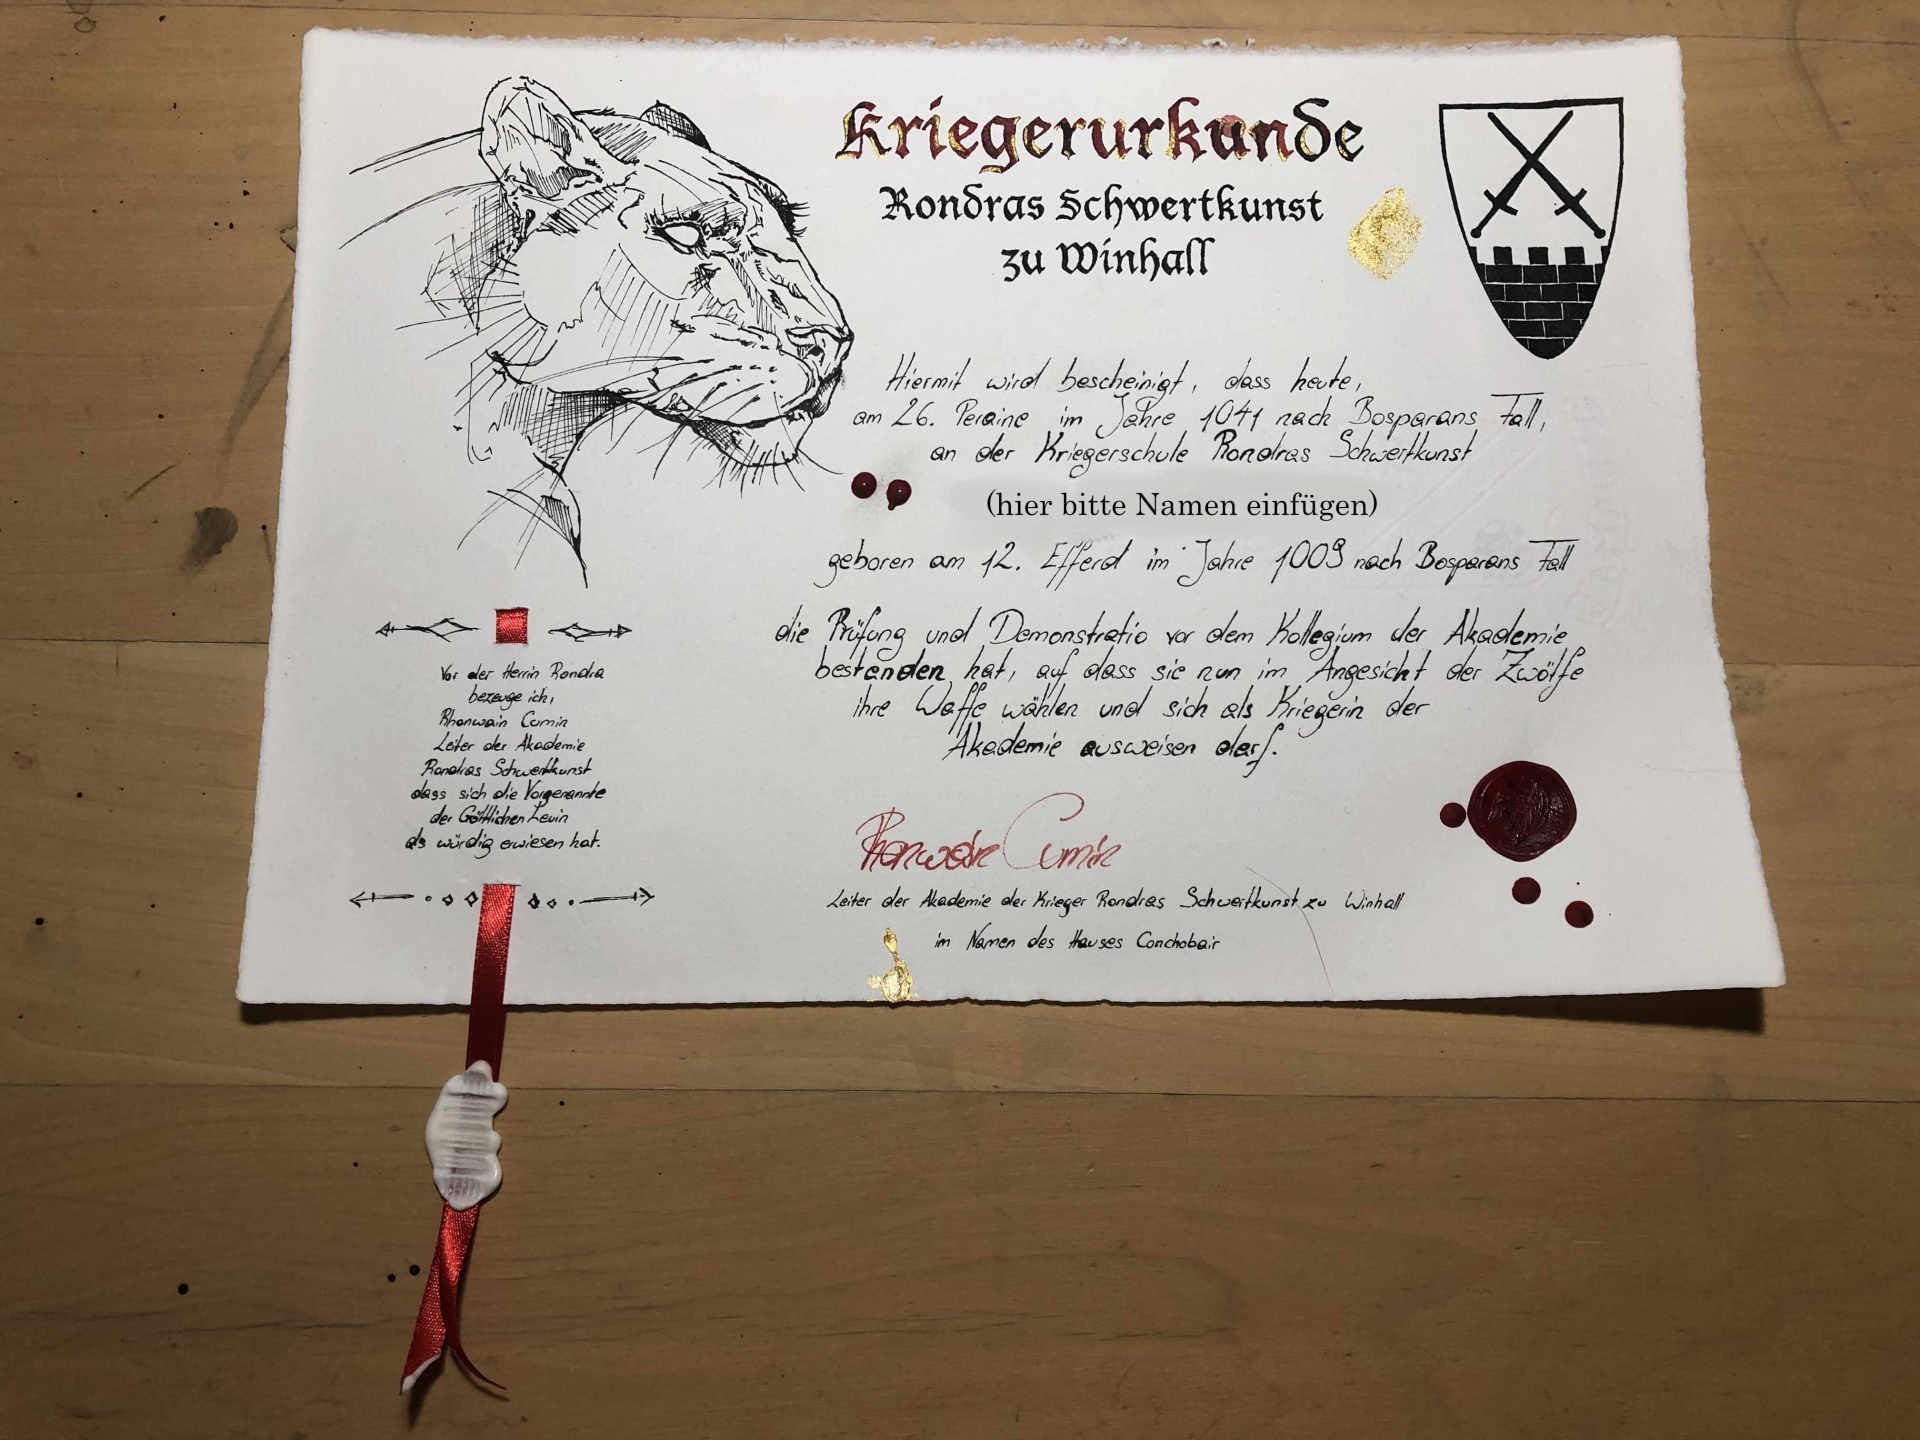 Kriegerurkunde
Rondras Schwertkunst
zu Winhall
Hiermit wird bescheinigt, dass heute,
am 26. Peraine im Jahre 1041 nach Bosparans Fall,
an der Kriegerschule Rondras Schwertkunst
(hier bitte Namen einfügen)
geboren am 12. Efferd im Jahre 1009 nach Bosparans Fall
die Prüfung und Demonstratio vor dem Kollegium der Akademie
bestanden hat, auf dass sie nun im Angesicht der Zwölfe
ihre Waffe wählen und sich als Kriegerin der
Akademie ausweisen darf.
Rhonwain Cumin
Leiter der Akademie der Krieger Rondras Schwertkunst zu Winhall
im Namen des Hauses Conchobair
Vor der Herrin Rondra
bezeuge ich,
Rhonwain Cumin
Leiter der Akademie
Rondras Schwertkunst
dass sich die Vorgenannte
der Göttlichen Leuin
als würdig erwiesen hat.